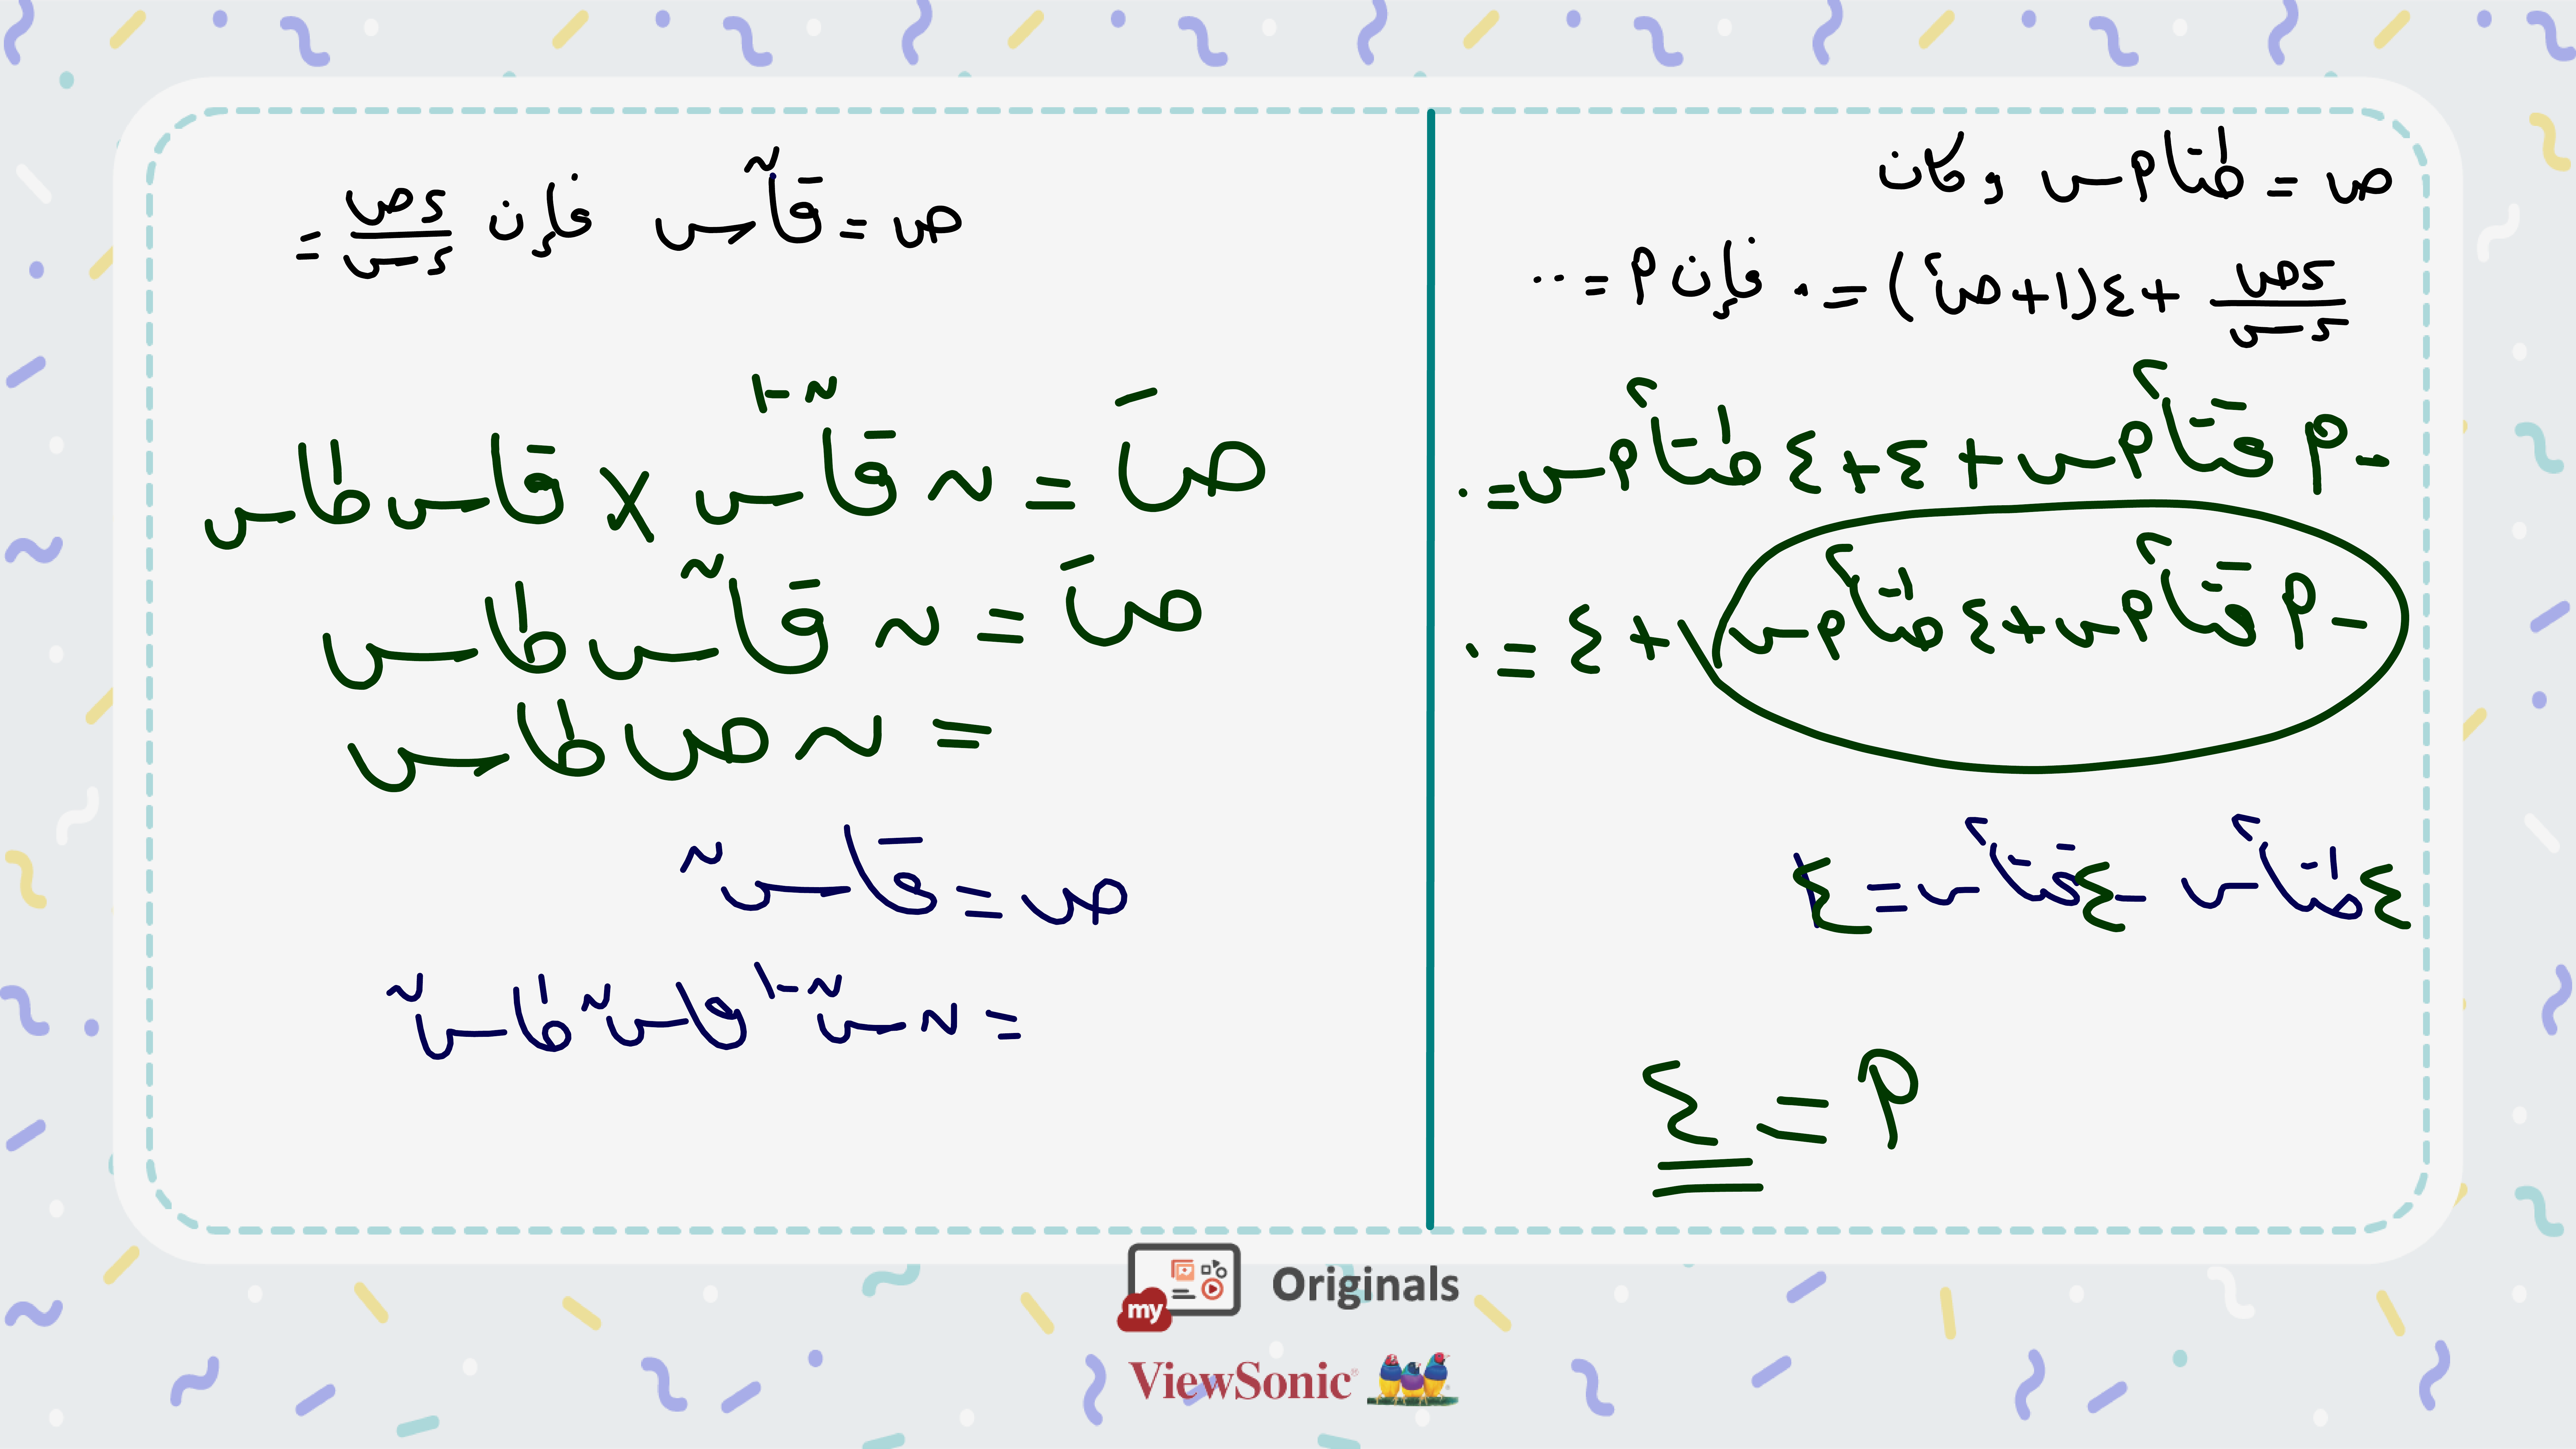 ص = ظتا م س وكان
ءص/ءس + ٤(١+ص٢) = ٠ فإن م = ...
-م قتا٢ م س + ٤ + ٤ ظتا٢ م س = ٠
-م قتا٢ م س + ٤ ظتا٢ م س + ٤ = ٠
٤ ظتا٢ س - ٤ قتا٢ س = -٤
م = ٤
ص = قان س فإن ءص/ءس =
صَ = ن قان-١ س × قاس ظاس
صَ = ن قان س ظاس
= ن ص ظاس
ص = قا سن
= ن سن-١ قا سن ظا سن
my Originals
ViewSonic